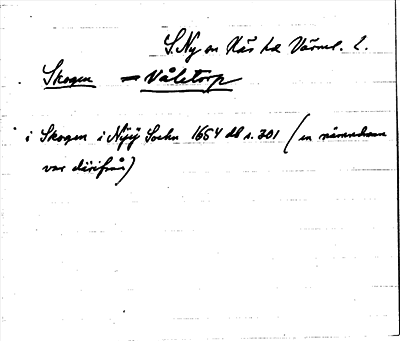 S. Ny sn Näs hd Värml. l.
Skogen = Våletorp
i Skogen i Nyÿ Sochn 1654 db s. 301 (en
var därifrån)